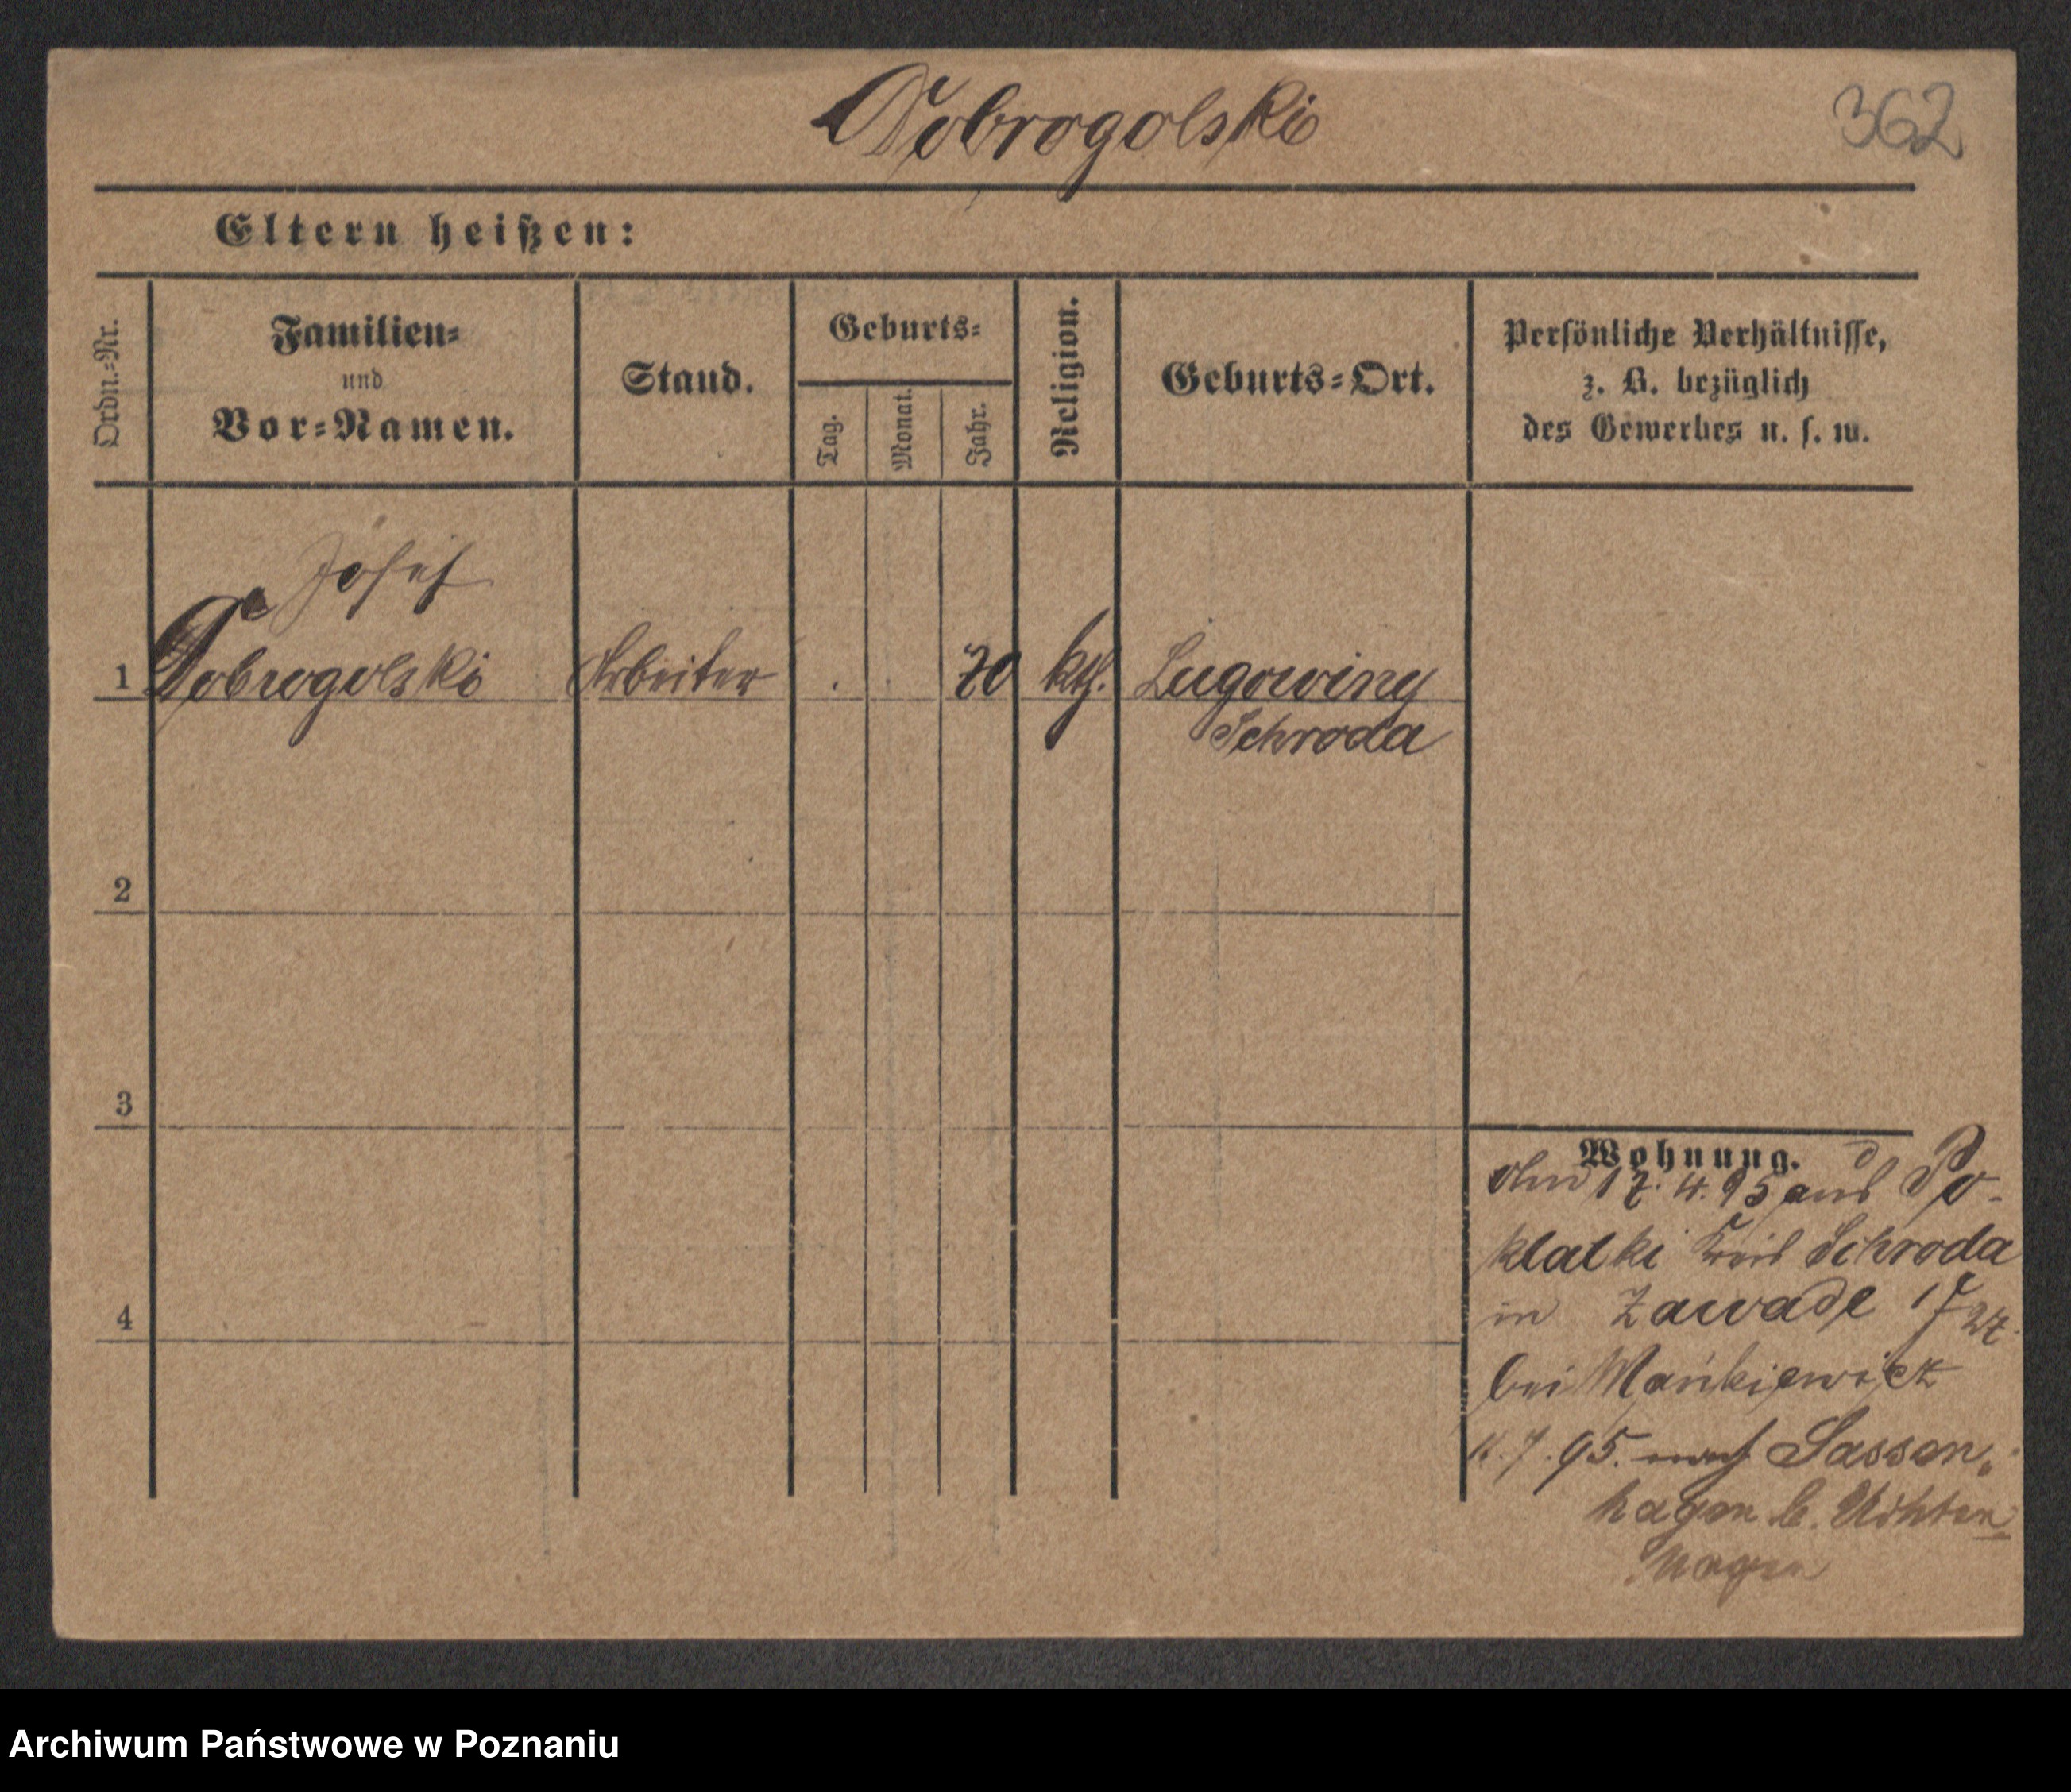 Dobrogolski
362
Eltern heißen:
Ordn.-Nr.
Familien-
und
Vor-Namen.
Stand.
Geburts-
Tag.
Monat.
Jahr.
Religion.
Geburts-Ort.
Persönliche Verhältnisse,
z. B. bezüglich
des Gewerbes u. s. w.
Josef
1 Dobrogolski Arbeiter 70 kth. Lugowiny
Schroda
2
3
4
Wohnung.
17. 4. 95 aus Po-
klatki Kreis Schroda
in Zawade 17
bei Mańkiewicz
7. 95. nach Sassen-
hagen b.
hagen
Archiwum Państwowe w Poznaniu